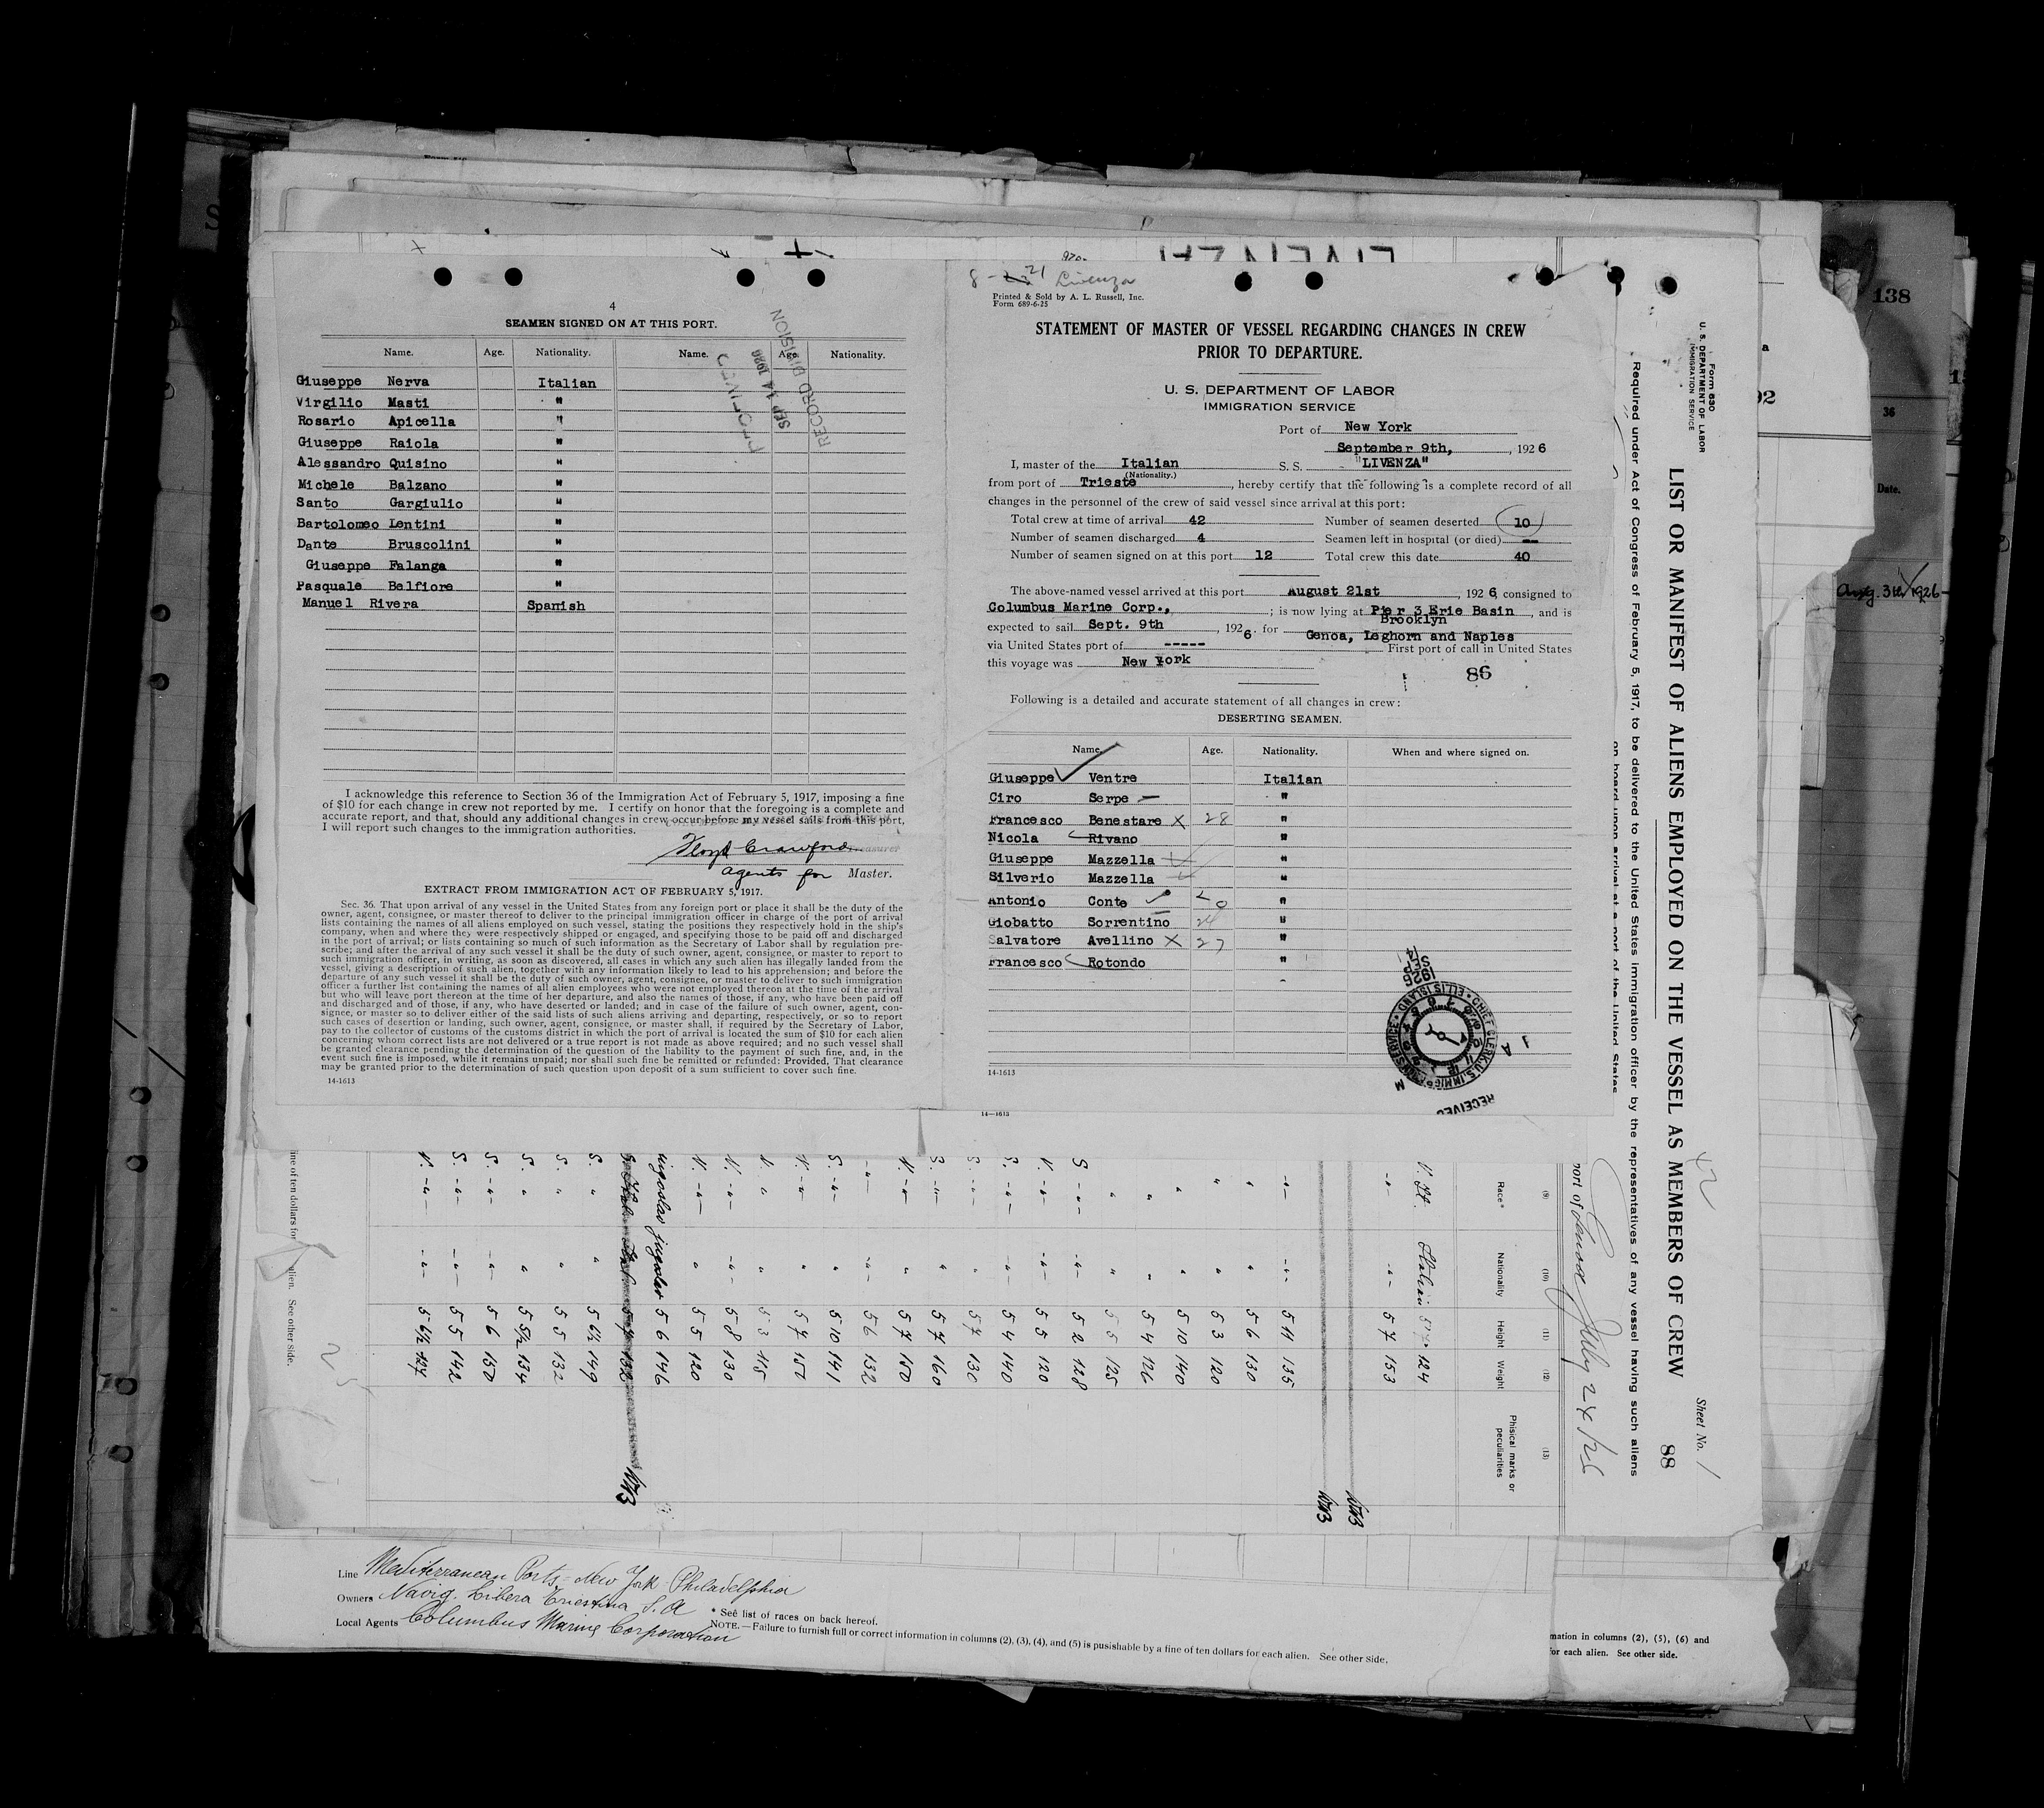 4
SEAMEN SIGNED ON AT THIS PORT.
Name. Age. Nationality. Name. Age. Nationality.
Giuseppe Nerva Italian
Virgilio Masti "
Rosario Apicella "
Giuseppe Raiola "
Alessandro Quisino "
Michele Balzano "
Santo Gargiulio "
Bartolomeo Lentini "
Dante Bruscolini "
Giuseppe Falanga "
Pasquale Belfiore "
Manuel Rivera Spanish
SEP 14 1926
RECORD DIVISION
I acknowledge this reference to Section 36 of the Immigration Act of February 5, 1917, imposing a fine
of $10 for each change in crew not reported by me. I certify on honor that the foregoing is a complete and
accurate report, and that, should any additional changes in crew occur before my vessel sails from this port,
I will report such changes to the immigration authorities.
Floyd Crawford
agents for Master.
EXTRACT FROM IMMIGRATION ACT OF FEBRUARY 5, 1917.
Sec. 36. That upon arrival of any vessel in the United States from any foreign port or place it shall be the duty of the
owner, agent, consignee, or master thereof to deliver to the principal immigration officer in charge of the port of arrival
lists containing the names of all aliens employed on such vessel, stating the positions they respectively hold in the ship's
company, when and where they were respectively shipped or engaged, and specifying those to be paid off and discharged
in the port of arrival; or lists containing so much of such information as the Secretary of Labor shall by regulation pre-
scribe; and after the arrival of any such vessel it shall be the duty of such owner, agent, consignee, or master to report to
such immigration officer, in writing, as soon as discovered, all cases in which any such alien has illegally landed from the
vessel, giving a description of such alien, together with any information likely to lead to his apprehension; and before the
departure of any such vessel it shall be the duty of such owner, agent, consignee, or master to deliver to such immigration
officer a further list containing the names of all alien employees who were not employed thereon at the time of the arrival
but who will leave port thereon at the time of her departure, and also the names of those, if any, who have been paid off
and discharged and of those, if any, who have deserted or landed; and in case of the failure of such owner, agent, con-
signee, or master so to deliver either of the said lists of such aliens arriving and departing, respectively, or so to report
such cases of desertion or landing, such owner, agent, consignee, or master shall, if required by the Secretary of Labor,
pay to the collector of customs of the customs district in which the port of arrival is located the sum of $10 for each alien
concerning whom correct lists are not delivered or a true report is not made as above required; and no such vessel shall
be granted clearance pending the determination of the question of the liability to the payment of such fine, and, in the
event such fine is imposed, while it remains unpaid; nor shall such fine be remitted or refunded: Provided, That clearance
may be granted prior to the determination of such question upon deposit of a sum sufficient to cover such fine.
14-1613
8 - 21 Livenza
Printed & Sold by A. L. Russell, Inc.
Form 689-6-25
STATEMENT OF MASTER OF VESSEL REGARDING CHANGES IN CREW
PRIOR TO DEPARTURE.
U. S. DEPARTMENT OF LABOR
IMMIGRATION SERVICE
Port of New York
September 9th, , 1926
I, master of the Italian S. S. "LIVENZA"
(Nationality.)
from port of Trieste , hereby certify that the following is a complete record of all
changes in the personnel of the crew of said vessel since arrival at this port:
Total crew at time of arrival 42 Number of seamen deserted 10
Number of seamen discharged 4 Seamen left in hospital (or died) --
Number of seamen signed on at this port 12 Total crew this date 40
The above-named vessel arrived at this port August 21st , 1926, consigned to
Columbus Marine Corp., ; is now lying at Pier 3 Erie Basin , and is
Brooklyn
expected to sail Sept. 9th , 1926. for Genoa, Leghorn and Naples
via United States port of ----- First port of call in United States
this voyage was New York
86
Following is a detailed and accurate statement of all changes in crew:
DESERTING SEAMEN.
Name. Age. Nationality. When and where signed on.
Giuseppe Ventre Italian
Ciro Serpe "
Francesco Benestare X 28 "
Nicola Rivano "
Giuseppe Mazzella "
Silverio Mazzella "
Antonio Conte "
Giobatto Sorrentino 24 "
Salvatore Avellino X 27 "
Francesco Rotondo
14-1613
CHIEF CLERK, U.S. IMMIGRATION SERVICE • ELLIS ISLAND
RECEIVED
1926
14—1613
Form 630
U. S. DEPARTMENT OF LABOR
IMMIGRATION SERVICE
Sheet No. 1
LIST OR MANIFEST OF ALIENS EMPLOYED ON THE VESSEL AS MEMBERS OF CREW
88
42
Required under Act of Congress of February 5, 1917, to be delivered to the United States immigration officer by the representatives of any vessel having such aliens
on board upon arrival at a port of the United States
port of Genoa July 24/26
(9) (10) (11) (12) (13)
Race* Nationality Height Weight Phisical marks or peculiarities
Italian 124
5 7 153
WB
WB
5 11 135
5 6 130
5 3 120
5 10 140
5 4 126
5 5 125
5 2 128
5 5 120
5 4 140
5 7 130
5 7 160
5 7 150
5 6 132
5 10 141
5 7 150
5 3 115
5 8 130
5 5 120
5 6 146
WB
5 6½ 149
5 5 132
5 5½ 134
5 6 150
5 5 142
5 6½ 127
ine of ten dollars for alien. See other side.
25
Line Mediterranean Ports - New York Philadelphia
Owners Navig. Libera Triestina S. A
Local Agents Columbus Marine Corporation
* See list of races on back hereof.
NOTE.—Failure to furnish full or correct information in columns (2), (3), (4), and (5) is pusishable by a fine of ten dollars for each alien. See other side.
mation in columns (2), (5), (6) and
for each alien. See other side.
138
92
36
Date.
Aug. 31st 1926